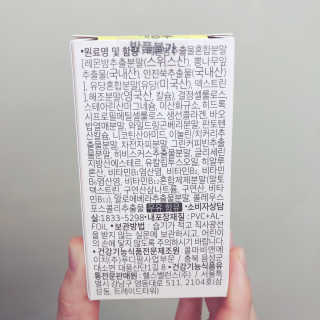 •원료명 및 함량 : 레몬밤추출물혼합분말
[레몬밤추출물(스위스산), 뽕나무잎
추출물(국내산), 인진쑥추출물(국내산)
], 유당혼합분말[유당(미국산), 덱스트린
], 해조분말(영국산, 칼슘), 결정셀룰로스
스테아린산마그네슘, 이산화규소, 히드록
시프로필메틸셀룰로스, 생선콜라겐, 바오
밥열매분말, 와일드망고베리분말, 판토텐
산칼슘, 니코틴산아미드, 이눌린/치커리추
출물분말, 차전자피분말, 그린커피빈추출
물분말, 히비스커스추출물분말, 글리세린
지방산에스테르, 히알루
론산, 비타민B₆염산염, 비타민B₁
염산염, 혼합제제분말
덱스트린, 구연산삼나트륨, 구연산, 비타
알로에베라추출물분말, 콜레우스
포스콜리추출물 우유 함유 •소비자상담
실:1833-5298•내포장재질:PVC+AL-
FOIL •보관방법: 습기가 적고 직사광선
을 받지 않는 실온에 보관하시고, 어린이
의 손에 닿지 않도록 주의하시기 바랍니다.
•건강기능식품전문제조원: 콜마비앤에
이치(주)푸디팜사업부문 / 충북 음성군
대소면 대풍산단1길 8 •건강기능식품유
통전문판매원: 헬스밸런스(주) / 서울특
별시 강남구 영동대로 511, 2104호(삼
성동, 트레이드타워)